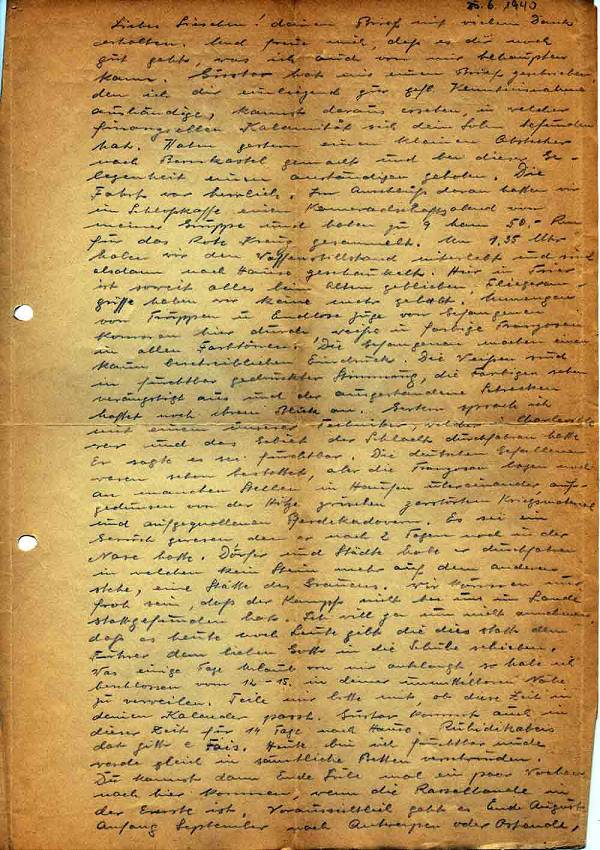 26.6.1940
Liebes Lieschen! deinen Brief mit vielem Dank
erhalten. Und freue mich, dass es dir noch
gut geht, was ich auch von mir behaupten
kann. Gustav hat uns einen Brief geschrieben,
den ich dir einliegend zur gefl. Kenntnisnahme
aushändige, kannst daraus ersehen, in welcher
finanziellen Kalamität sich dein Sohn befunden
hat. Haben gestern einen kleinen Abstecher
nach Bernkastel gemacht und bei dieser Ge-
legenheit einen anständigen gehoben. Die
Fahrt war herrlich. Im Anschluß daran hatten wir
im einen Kameradschaftsabend von
meiner Gruppe und haben zu 9 Mann 50,- Rm
für das Rote Kreuz gesammelt. Um 1,35 Uhr
haben wir den Waffenstillstand miterlebt und sind
alsdann nach Hause geschaukelt. Hier in Trier
ist soweit alles beim Alten geblieben, Fliegeran-
griffe haben wir keine mehr gehabt. Unmengen
von Truppen u. Endlose Züge von Gefangenen
kommen hier durch, weiße u. farbige Franzosen
in allen Farbtönen. Die Gefangenen machen einen
kaum beschreiblichen Eindruck. Die Weißen sind
in furchtbar gedrückter Stimmung, die Farbigen sehen
verängstigt aus und der ausgestandene Schrecken
haftet noch ihrem Blicke an. Gestern sprach ich
mit einem unserer Techniker, welcher in Charleville
war und das Gebiet der Schlacht durchfahren hatte
Er sagte es sei furchtbar. Die deutschen Gefallenen
waren schon bestattet, aber die Franzosen lagen noch
an manchen Stellen in Haufen übereinander, auf-
gedunsen von der Hitze zwischen zerstörtem Kriegsmaterial
und aufgequollenen Pferdekadavern. Es sei ein
Geruch gewesen, den er nach 2 Tagen noch in der
Nase hatte. Dörfer und Städte habe er durchfahren
in welchen kein Stein mehr auf dem anderen
stehe, eine Stätte des Grauens. Wir können nur
froh sein, dass der Kampf nicht bei uns im Lande
stattgefunden hat. Ich will ja nun nicht annehmen,
daß es heute noch Leute gibt die dies statt dem
Führer dem lieben Gotte in die Schuhe schieben.
Was einige Tage Urlaub von mir anbelangt so habe ich
beschlossen vom 12 - 15. in deiner unmittelbaren Nähe
zu verweilen. Teile mir bitte mit, ob diese Zeit in
deinen Kalender passt. Gustav kommt auch in
dieser Zeit für 14 Tage nach Hause.
dat gitt e Fais. Heute bin ich furchtbar müde
werde gleich in sämtliche Betten verschwinden.
Du kannst dann Ende Juli mal ein paar Wochen
nach hier kommen, wenn die Rasselbande in
der Ernte ist. Voraussichtlich geht es Ende August
Anfang September nach Antwerpen oder Ostende,